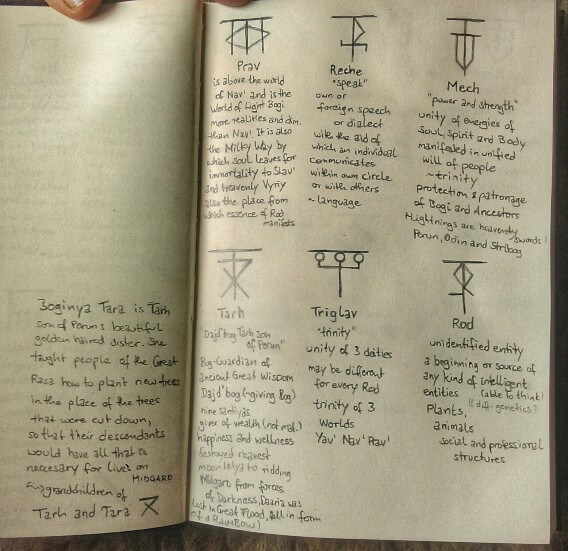 Boginya Tara is Tarh
son of Perun's beautiful
golden haired sister. She
taught people of the Great
Rasa how to plant new trees
in the place of the trees
that were cut down,
so that their descendants
would have all that is
necesary for live on
MIDGARD
grandchildren of
Tarh and Tara
Prav
is above the world
of Nav' and is the
World of Light Bogi
more realities and dim.
than Nav'. It is also
the Milky Way by
which soul leaves for
immortality to Slav'
and heavenly Vyriy
also the place from
which essence of Rod
manifests
Reche
"speak"
own or
foreign speech
or dialect
with the aid of
which an individual
communicates
within own circle
or with others
~ language
Mech
"power and strength"
unity of energies of
Soul, Spirit and Body
manifested in unified
will of people
~ trinity
protection & patronage
of Bogi and Ancestors
Lightnings are heavenly
swords!
Perun, Odin and Stribog
Tarh
"Dajd'bog Tarh son
of Perun"
Bog-Guardian of
ancient Great Wisdom
Dajd'bog (~giving Bog)
nine santiyas
giver of wealth (not mat.)
happiness and wellness
destroyed nearest
moon Lelya to ridding
Midgard from forces
of Darkness, Daaria was
lost in Great Flood, fall in form
of a RainBow)
Triglav
"trinity"
unity of 3 deities
may be different
for every Rod
trinity of 3
Worlds
Yav' Nav' Prav'
Rod
unidentified entity
a beginning or source of
any kind of intelligent
entities (able to think)
(diff. genetics?)
Plants,
animals
social and professional
structures